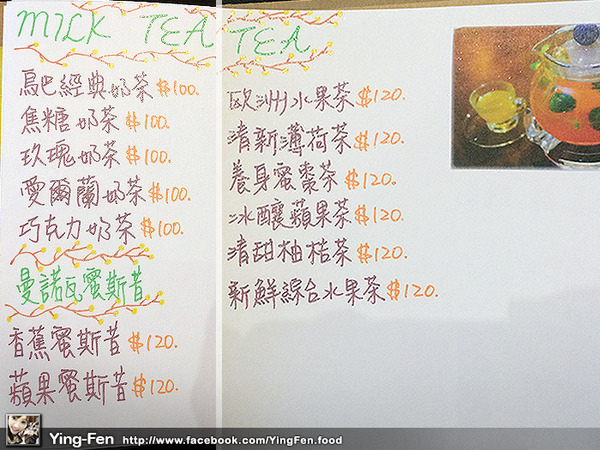 MILK TEA
烏巴經典奶茶 $100.
焦糖奶茶 $100.
玫瑰奶茶 $100.
愛爾蘭奶茶 $100.
巧克力奶茶 $100.
曼諾瓦蜜斯昔
香蕉蜜斯昔 $120.
蘋果蜜斯昔 $120.
TEA
歐洲水果茶 $120.
清新薄荷茶 $120.
養身蜜棗茶 $120.
冰釀蘋果茶 $120.
清甜柚桔茶 $120.
新鮮綜合水果茶 $120.
Ying-Fen http://www.facebook.com/YingFen.food